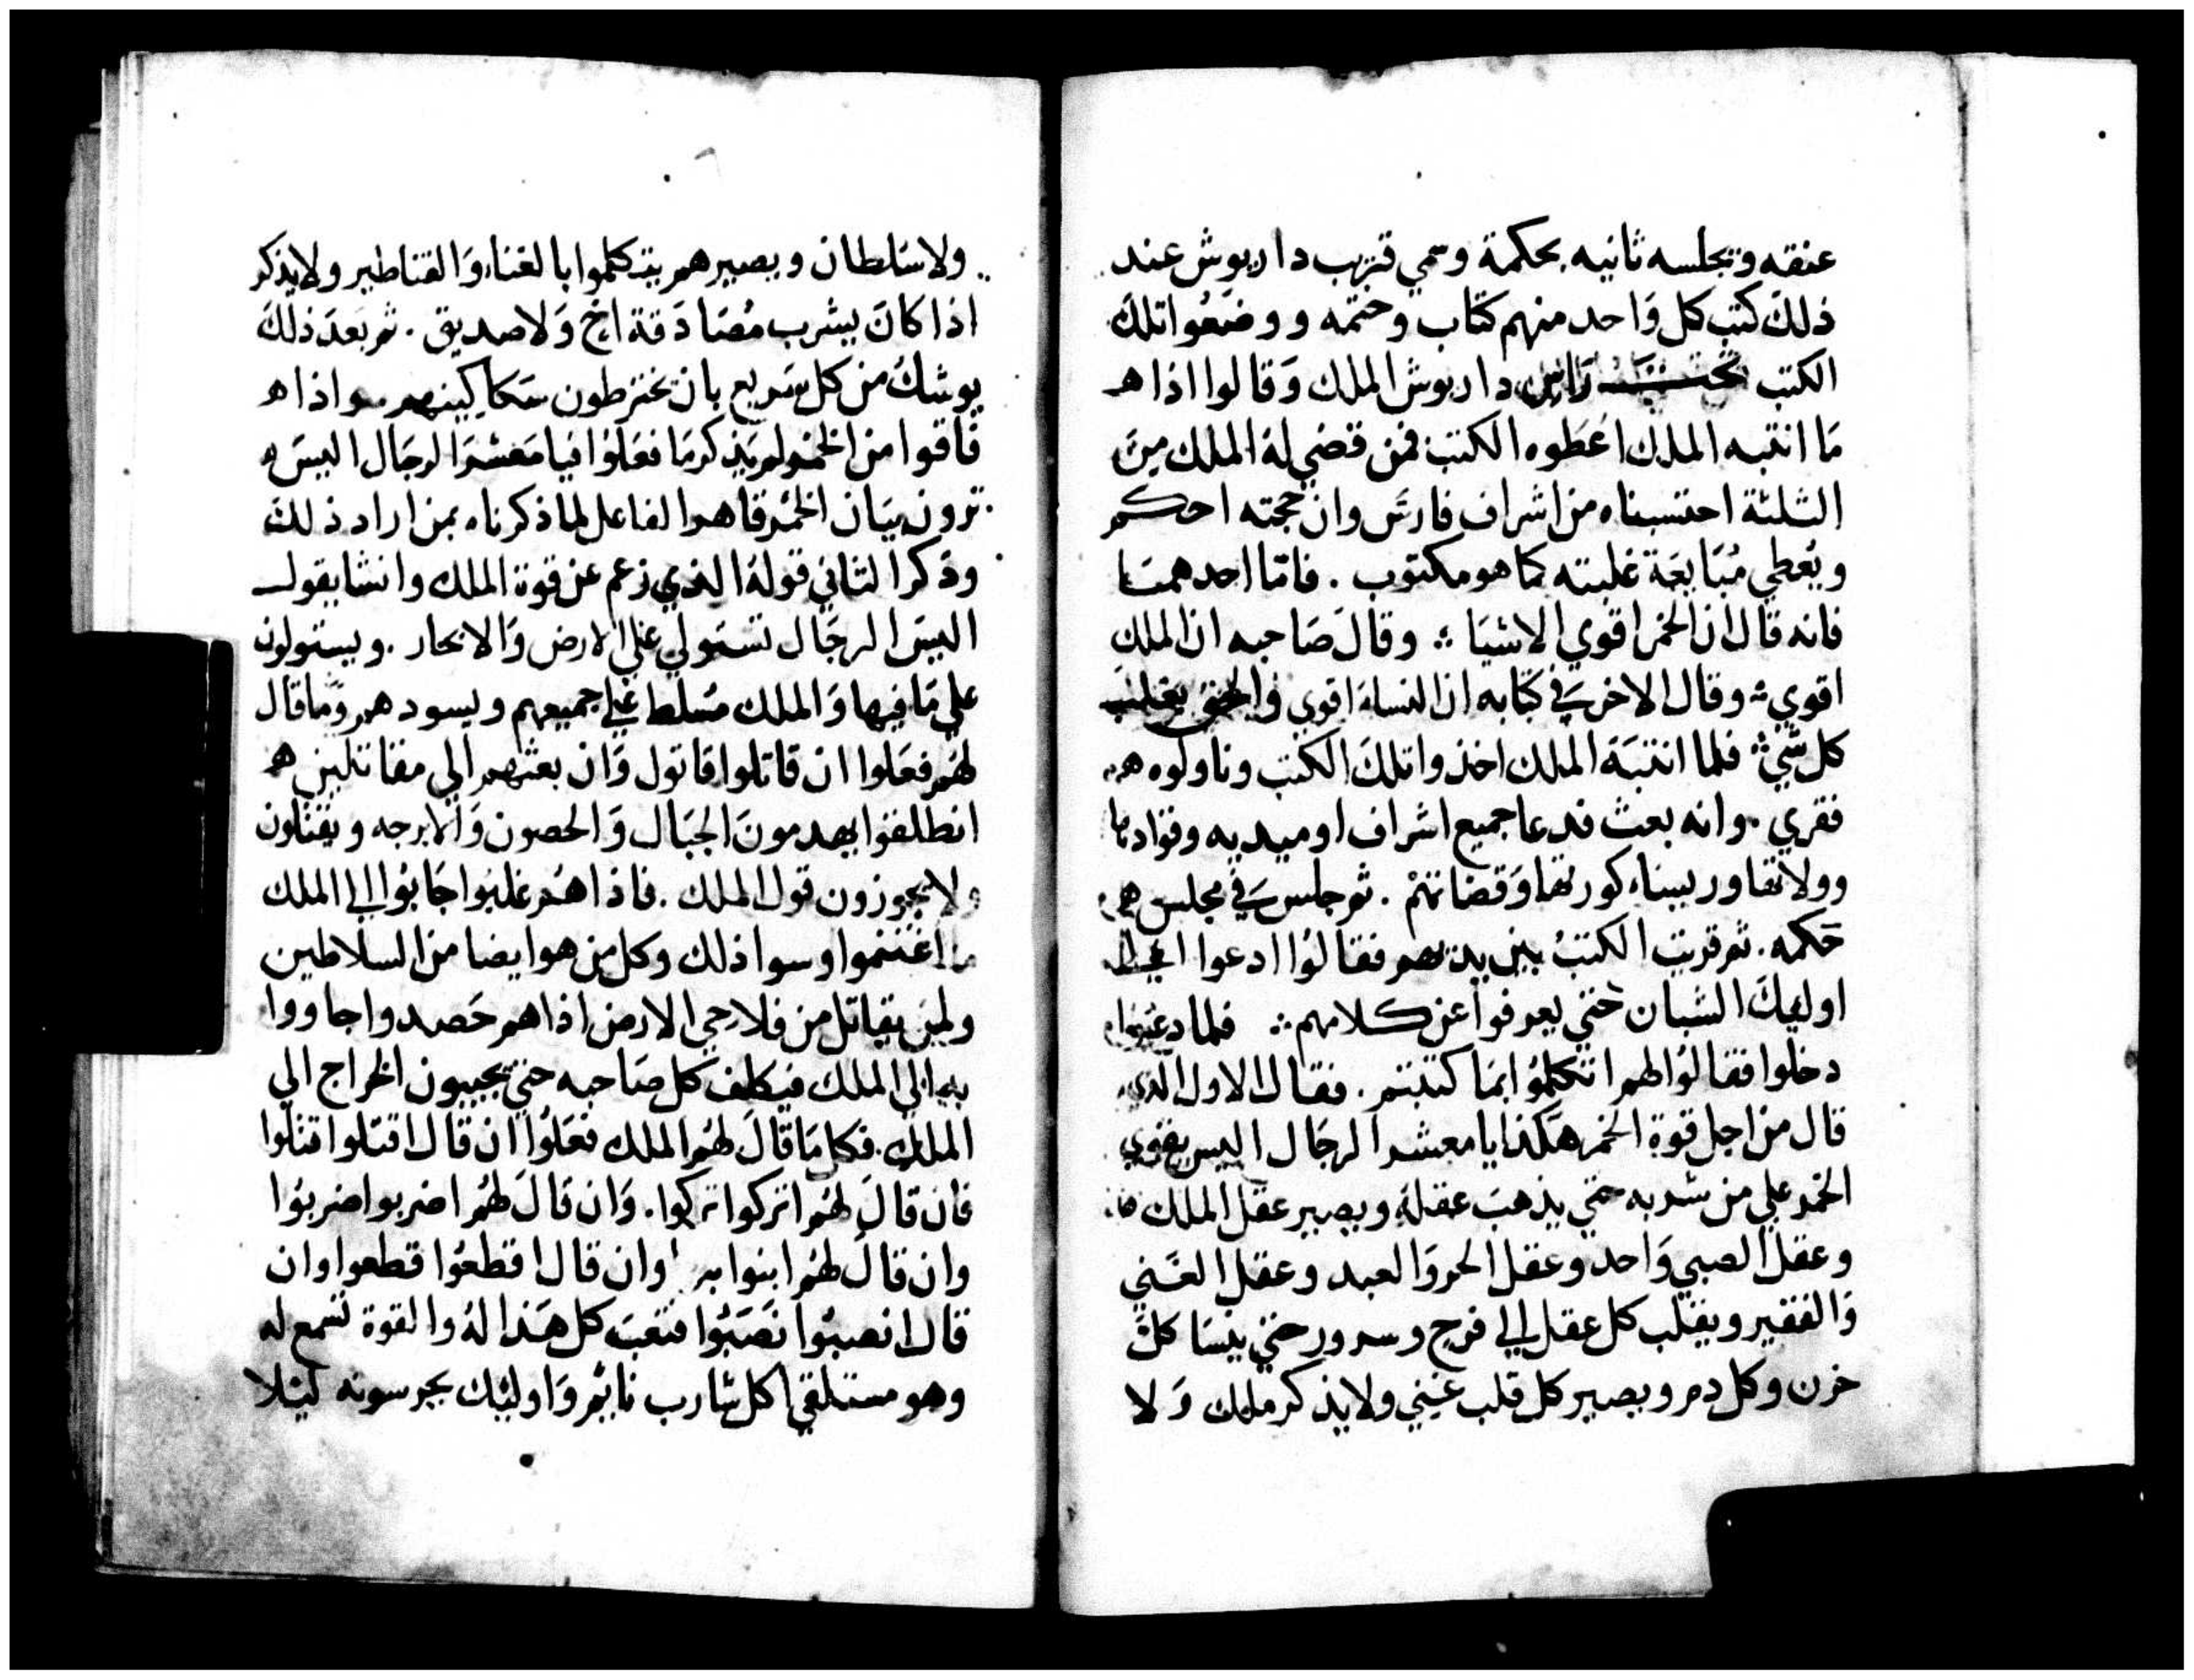 عنقه ويجلسه ثانيه بحكمة وسمي قريب داريوش عند
ذلك كتب كل واحد منهم كتاب وختمه ووضعوا تلك
الكتب تحت راس داريوش الملك وقالوا اذا هـ
ما انتبه الملك اعطوه الكتب فمن قضي له الملك من
الثلثة احتسبناه من اشراف فارس وان حجته احكم
ويعطي مبايعة غلبته كما هو مكتوب . فاما احدهما
فانه قال ان الخمر اقوي الاشيا ؞ وقال صاحبه ان الملك
اقوي ؞ وقال الاخر في كتابه ان النساء اقوي والحق يغلب
كل شي ؞ فلما انتبه الملك اخذوا تلك الكتب وناولوه هـ
فقري . وانه بعث فدعا جميع اشراف اوميديه وقوادها
وولاتها ورييناء كورتها وقضاتهم . ثم جلس في مجلس
حكمه . ثم قريت الكتب بين يديهم فقالوا ادعوا الي
اوليك الشبان حتي يعرفوا عن كلامهم ؞ فلما دعيوا
دخلوا فقالوا لهم اتكلموا بما كتبتم . فقال الاول الذي
قال من اجل قوة الخمر هكذا يا معشر الرجال اليس يقوي
الخمر علي من شربه حتي يذهب عقله ويصير عقل الملك
وعقل الصبي واحد وعقل الحر والعبد وعقل الغني
والفقير ويقلب كل عقل الي فرح وسرور حتي ينسا كل
حزن وكل دم ويصير كل قلب غني ولا يذكر ملك ولا
ولا سلطان ويصيرهم يتكلموا بالغناء والقناطير ولا يذكر
اذا كان يشرب مصادقة اخ ولا صديق . ثم بعد ذلك
يوشك من كل سريع بان يخترطون سكاكينهم واذا هـ
فاقوا من الخمر لم يذكر ما فعلوا فيا معشر الرجال اليس
ترون بيان الخمر قاهر الفاعل لما ذكرناه بمن اراد ذلك
وذكر الثاني قوله الذي زعم عن قوة الملك وانشا يقول
اليس الرجال تستولي علي الارض والابحار . ويستولون
علي ما فيها والملك مسلط علي جميعهم ويسودهم وما قال
لهم فعلوا ان قاتلوا قاتول وان بعثهم الي مقاتلين هـ
انطلقوا يهدمون الجبال والحصون والابرجه ويقتلون
ولا يجوزون قول الملك . فاذا هم غلبوا جابوا الي الملك
ما اغتنموا وسوا ذلك وكل من هو ايضا من السلاطين
ولمن يقاتل من فلاحي الارض اذا هم حصدوا جاووا
به الي الملك فيكلف كل صاحبه حتي يجيبون الخراج الي
الملك . فكل ما قال لهم الملك فعلوا ان قال اقتلوا قتلوا
فان قال لهم اتركوا تركوا . وان قال لهم اضربوا ضربوا
وان قال لهم ابنوا وان قال اقطعوا قطعوا وان
قال انصبوا نصبوا فتعب كل هذا له والقوة تسمع له
وهو مستلقي اكل شارب نايم واوليك يحرسونه كيلا